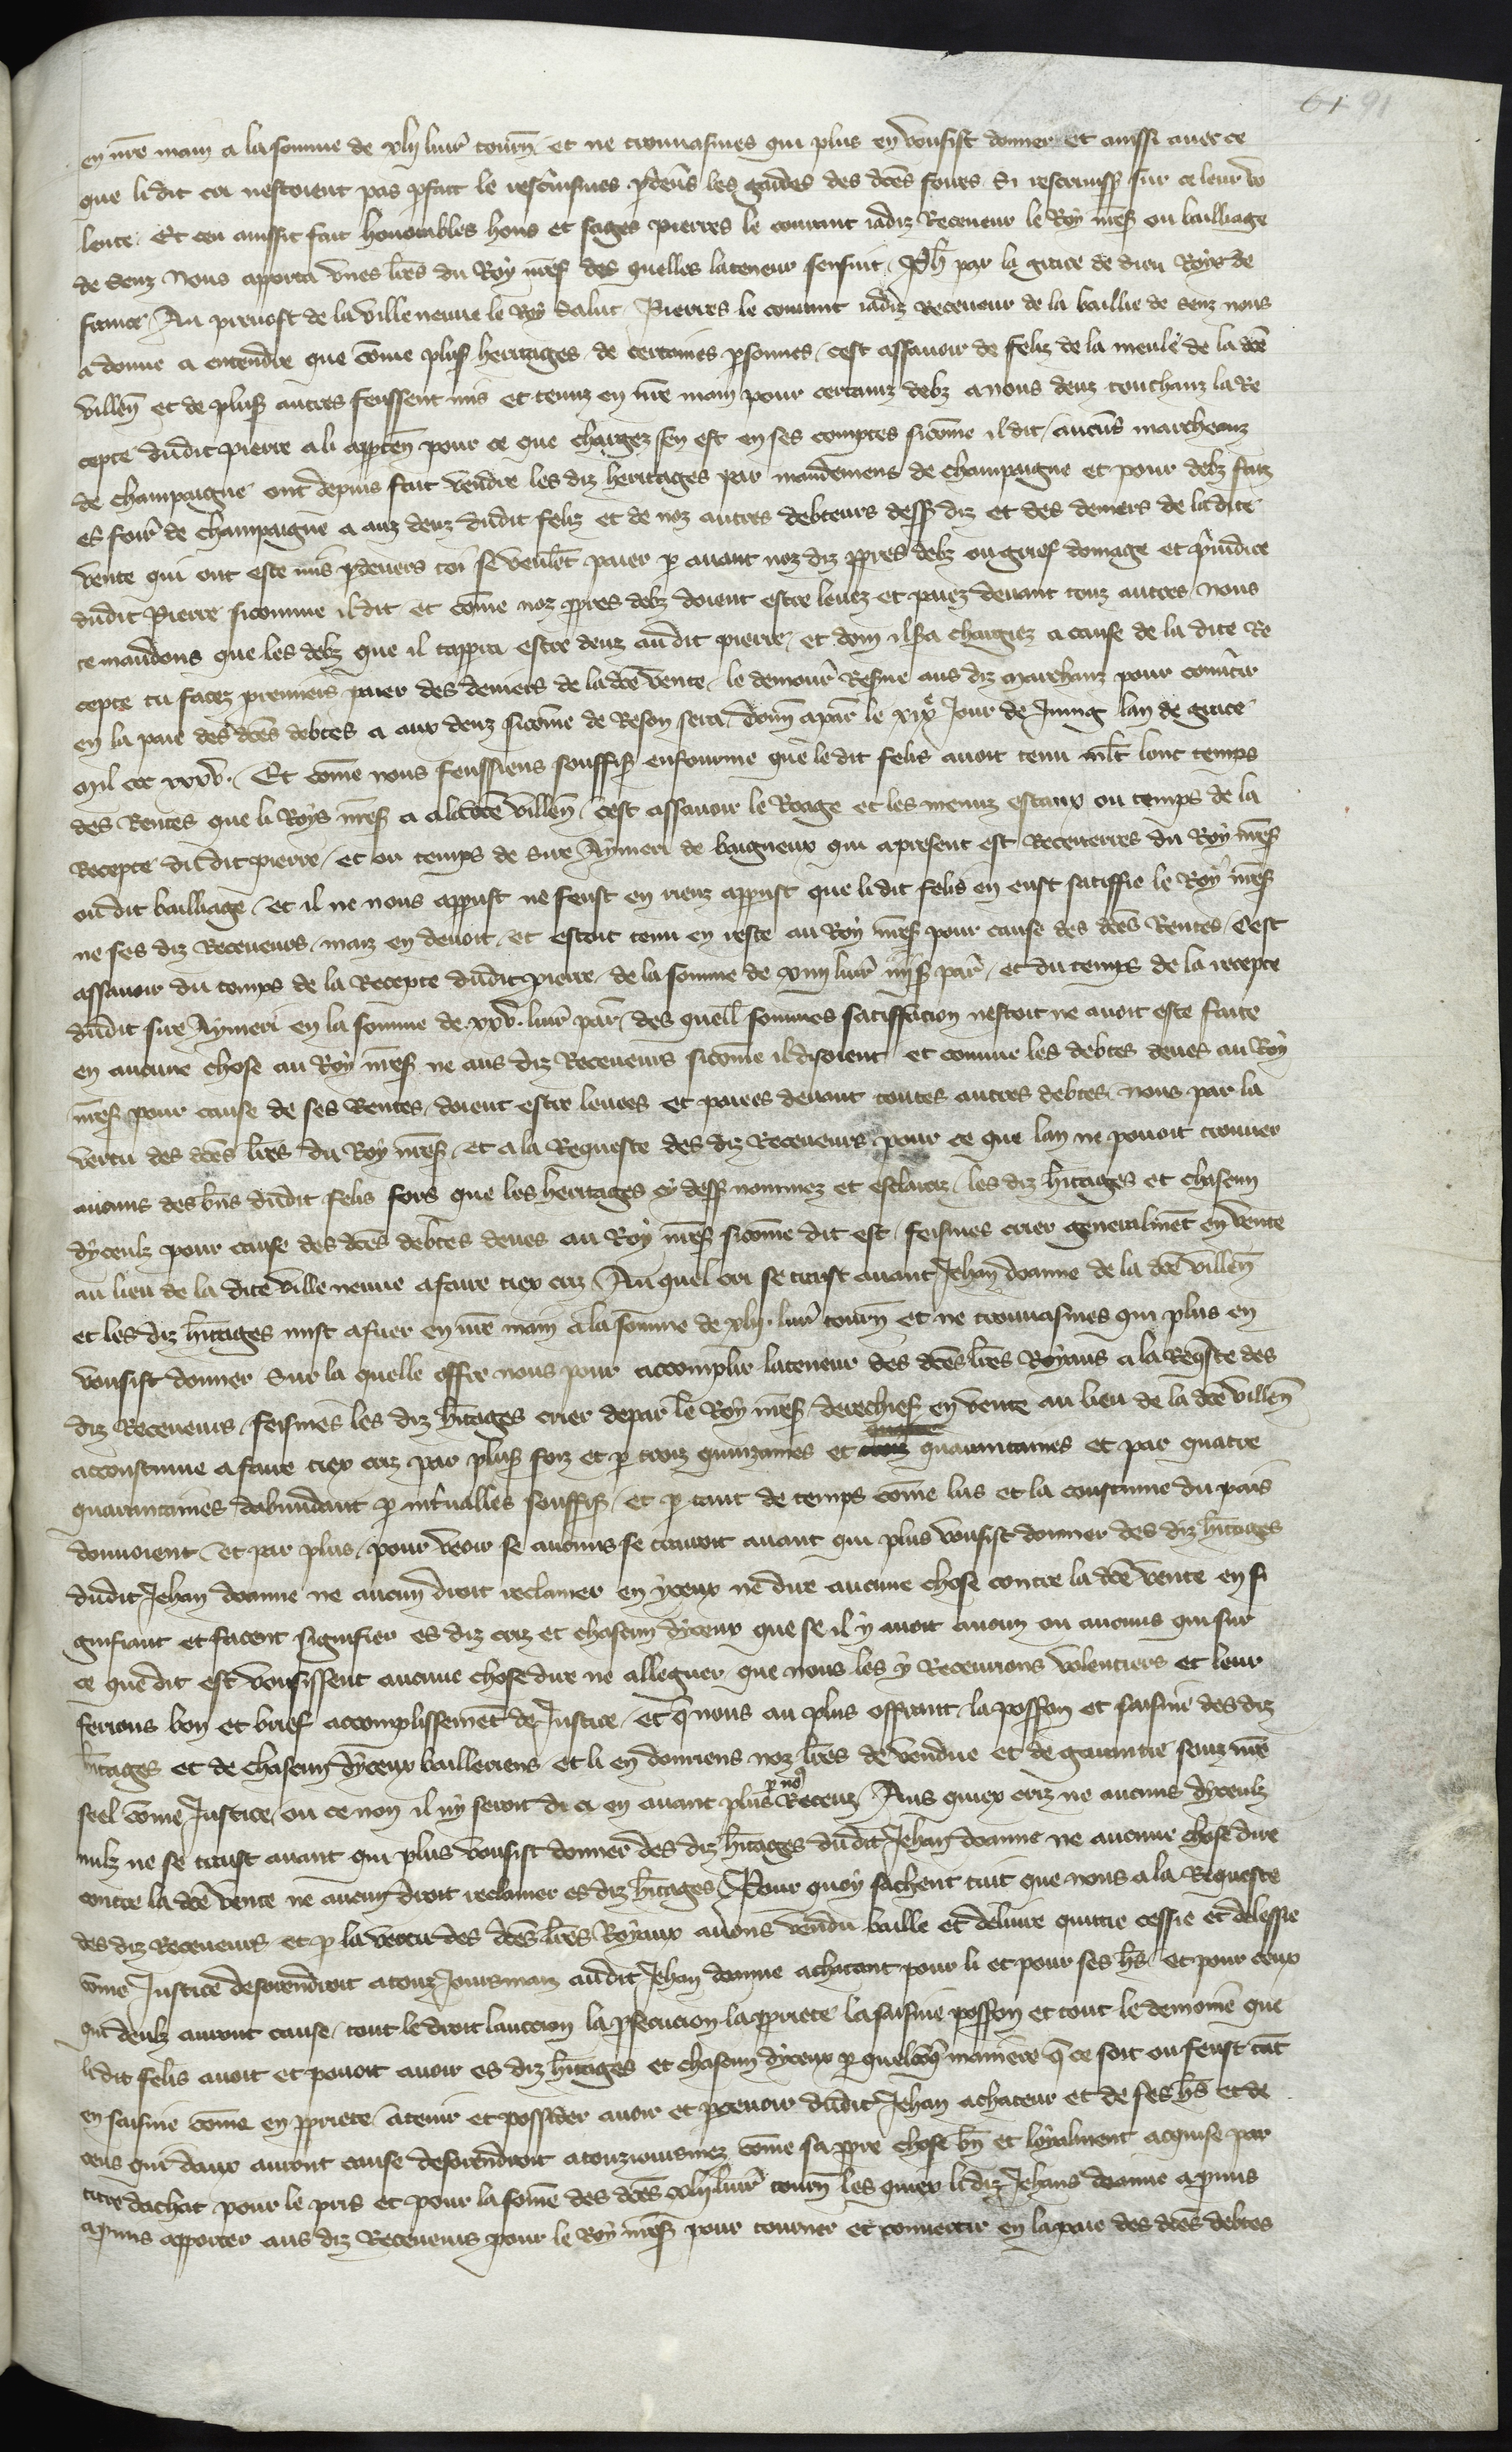 61 91
en nr̄e main a la somme de xlij livr̄ tourn̄ et ne trouvasmes qui plus en vousist donner et aussi avec ce
que li dit cri nestoient pas p̄fait le rescrisismes p̄ devers les gardes des dc̄es foires Si rescrirent sur ce leur vo
lente. Et ceu aussit fait honorables hons et sages Pierres le courant iadiz Receveur le Roy nr̄e sꝭ ou bailliage
de Senz nous apporta unes lr̄es du Roy nr̄e sꝭ des quelles la teneur sensuit. Ph̄ par la grace de dieu Roys de
france Au prevost de la ville neuve le Roy Salut. Pierres le courant iadiz Receveur de la baillie de Senz nous
a donne a entendre que com̄e plusꝭ heritages de certaines p̄sonnes cest assavoir de Feliz de la meule de la dc̄e
villen̄ et de plusꝭ autres feussent mis et tenuz en nr̄e main pour certainz debz a nous deuz touchanz la Re
cepte dudit Pierre a li appten̄ pour ce que chargez sen est en ses comptes sicom̄e il dit aucuns marcheanz
de champaigne ont depuis fait vendre les diz heritages par mandemens de champaigne et pour debz faiz
es foir̄ de champaigne a auz deuz dudit feliz et de noz autres debteurs dessꝭ diz et des deniers de la dite
vente qui ont este mis p̄ devers toi se veulēt paier p̄ avant noz diz pp̄res debz ou grief domage et p̄iudice
dudit Pierre sicomme il dit et com̄e noz pp̄res debz doient estre levez et paiez devant touz autres Nous
te mandons que les debz que il tapperra estre deuz audit pierre et dont il sera chargiez a cause de la dite Re
cepte tu facez premiers paier des deniers de la dc̄e vente le demour̄ Resꝭve aus diz marchanz pour convtir
en la paie des dc̄es debtes a aux deuz sicom̄e de Reson sera. Donn̄ a par̄ le xixe Jour de Juing lan de grace
mil ccc xxxv. Et com̄e nous feussiens souffisꝭ enfourme que le dit felis avoit tenu mlt̄ lonc temps
des Rentes que li Roys nr̄e sꝭ a a la dc̄e villen̄ cest assavoir le Roage et les menuz estaux ou temps de la
Recepte du dit pierre et ou temps de sire Aymeri de baigneux qui a present est Receverres du Roy nr̄e sꝭ
ou dit bailliage et il ne nous apparust ne feust en riens apparust que le dit felis en eust satiffie le Roy nr̄e sꝭ
ne ses diz Receveurs maiz en devoit et estoit tenu en reste au Roy nr̄e sꝭ pour cause des dc̄es Rentes Cest
assavoir du temps de la Recepte dudit Pierre de la somme de xiiij livr̄ iiij s par̄ et du temps de la recepte
dudit sire Aymeri en la somme de .xxv. livr̄ par̄ des quell̄ sommes satiffacion nestoit ne avoit este faite
en aucune chose au Roy nr̄e sꝭ ne aus diz Receveurs sicom̄e il disoient et comme les debtes deues au Roy
nr̄e sꝭ pour cause de ses Rentes doient estre levees et paiees devant toutes autres debtes nous par la
vertu des dc̄es lr̄es du Roy nr̄e sꝭ et a la Requeste des diz Receveurs pour ce que lan ne povoit trouver
aucuns des bn̄s dudit felis fors que les heritages cy dessꝭ nommez et esclarciz les diz hr̄itages et chascun
dyceulz pour cause des dc̄es debtes deues au Roy nr̄e sꝭ sicom̄e dit est feismes crier generalmēt en vente
au lieu de la dite ville neuve a faire tiex criz Au quel cri se traist avant Jehan doanne de la dc̄e villen̄
et les diz hr̄itages mist a fuer en nr̄e main a la somme de xlij. livr̄ tourn̄ et ne trouvasmes qui plus en
vousist donner Sur la quelle offre nous pour accomplir la teneur des dc̄es lr̄es Royaus a la Req̄ste des
diz Receveurs feismes les diz hr̄itages crier depar le Roy nr̄e sꝭ derechief en vente au lieu de la dc̄e villen̄
acoustume a faire tiex criz par plusꝭ foiz et p̄ trois quinzaines et quarantaines et par quatre
quarantaines dabundant p̄ int̄valles souffisꝭ et p̄ tant de temps com̄e lus et la coustume du pais
donnoient et par plus pour veoir se aucuns se trairoit avant qui plus vousist donner des diz hr̄itages
dudit Jehan doanne ne aucun droit reclamer en yceux ne dire aucune chose contre la dc̄e vente en si
gnifiant et facent signifier es diz criz et chascun dyceux que se il y avoit aucun ou aucuns qui sur
ce que dit est vousissent aucune chose dire ne alleguer que nous les y Recevrions volentiers et leur
ferions bon et brief accomplissemēt de Justice et q̄ nous au plus offrant la possession et saisine des diz
hr̄itages et de chascun dyceux bailleriens et li en donriens noz lr̄es de vendue et de garantie seuz nr̄e
seel com̄e Justice ou ce non il ny seroit di ci en avant plus p̄ no9 Receuz Aus quiex criz ne aucuns dyceulz
nulz ne se traist avant qui plus vousist donner des diz hr̄itages dudit Jehan doanne ne aucune chose dire
contre la dc̄e vente ne aucun droit reclamer es diz hr̄itages Pour quoy sachent tuit que nous a la Requeste
des diz Receveurs et p̄ la vertu des dc̄es lr̄es Royaux avons vendu baille et delivre quittie cessie et delessie
com̄e Justice desorendroit a touz joursmaiz audit Jehan doanne achatant pour li et pour ses hr̄s et pour ceux
qui deulz auront cause tout le droit laucion la p̄secucion la pp̄riete la saisine possession et tout le demoine que
li dit felis avoit et povoit avoir es diz hr̄itages et chascun dyceux p̄ quelcōq̄ maniere q̄ ce soit ou feust tāt
en saisine com̄e en pp̄riete a tenir et possider avoir et p̄cevoir dudit Jehan achateur et de ses hr̄s et de
ceus qui daux auront cause desorendroit a touzjoursmez com̄e sa pp̄re chose bn̄ et loyalment acquise par
titre dachat pour le pris et pour la som̄e des dc̄es xlij livr̄ tourn̄ les quex li diz Jehans doanne a prins
a prins apporter aus diz Receveurs pour le Roy nr̄e sꝭ pour tourner et convertir en la paie des dc̄es debtes